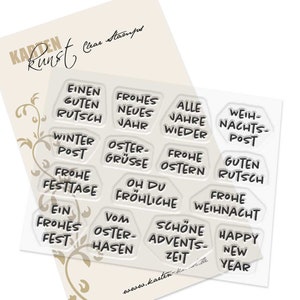 KARTEN
Kunst Clear Stamps
EINEN
GUTEN
RUTSCH
FROHES
NEUES
JAHR
ALLE
JAHRE
WIEDER
WEIH-
NACHTS-
POST
WINTER
POST
OSTER-
GRÜSSE
FROHE
OSTERN
GUTEN
RUTSCH
FROHE
FESTTAGE
OH DU
FRÖHLICHE
FROHE
WEIHNACHT
EIN
FROHES
FEST
VOM
OSTER-
HASEN
SCHÖNE
ADVENTS-
ZEIT
HAPPY
NEW
YEAR